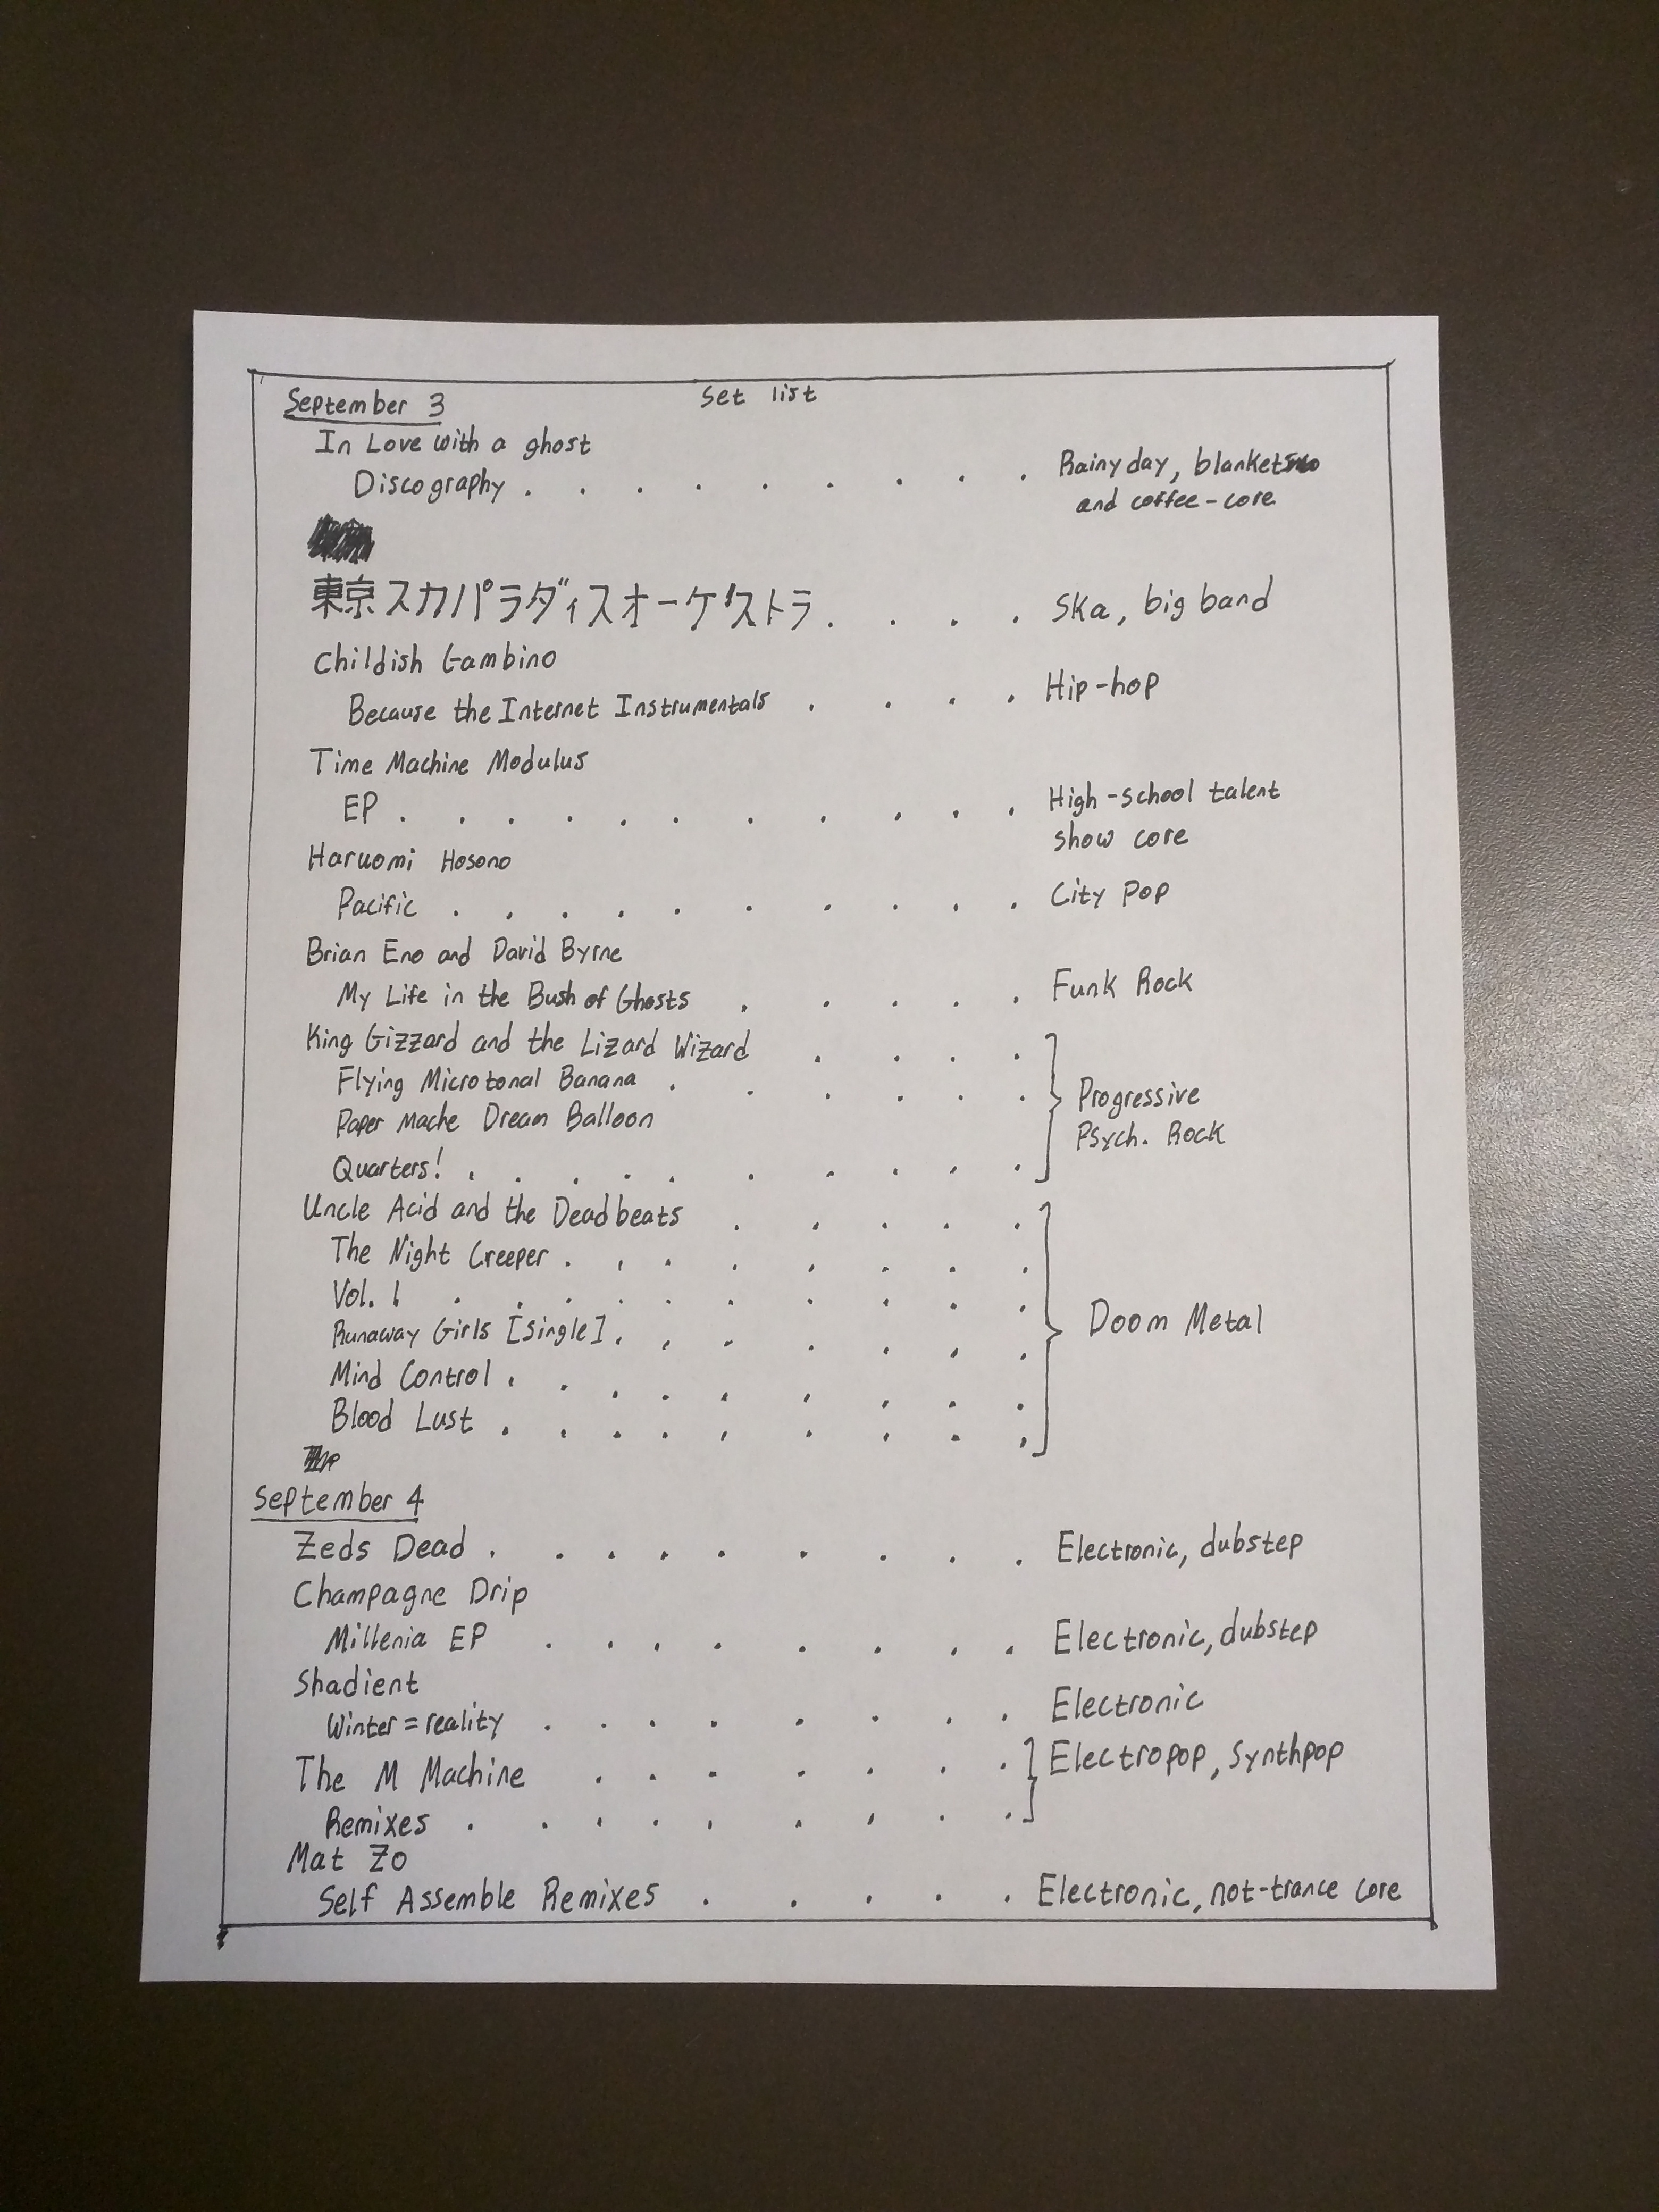 Set list
September 3
In Love with a ghost
Discography . . . . . . . . . Rainy day, blankets
and coffee-core
東京スカパラダイスオーケストラ . . . . Ska, big band
Childish Gambino
Because the Internet Instrumentals . . . . Hip-hop
Time Machine Modulus
EP . . . . . . . . . . . High-school talent
show core
Haruomi Hosono
Pacific . . . . . . . . . . City Pop
Brian Eno and David Byrne
My Life in the Bush of Ghosts . . . . . Funk Rock
King Gizzard and the Lizard Wizard . . . .
Flying Microtonal Banana . . . . . . Progressive
Paper Mache Dream Balloon Psych. Rock
Quarters! . . . . . . . . . .
Uncle Acid and the Deadbeats . . . . .
The Night Creeper . . . . . . . .
Vol. 1 . . . . . . . . .
Runaway Girls [Single] . . . . . . . Doom Metal
Mind Control . . . . . . . . .
Blood Lust . . . . . . . . .
September 4
Zeds Dead . . . . . . . . . Electronic, dubstep
Champagne Drip
Millenia EP . . . . . . . . Electronic, dubstep
Shadient
Winter=reality . . . . . . . . Electronic
The M Machine . . . . . . . Electropop, synthpop
Remixes . . . . . . . . .
Mat Zo
Self Assemble Remixes . . . . . Electronic, not-trance core